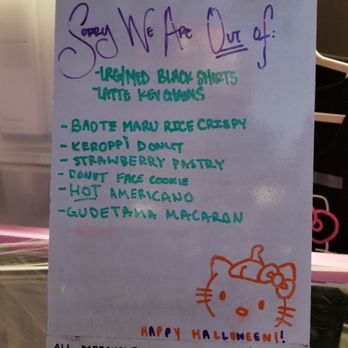 Sorry We Are Out of:
-LRG/MED BLACK SHIRTS
-LATTE KEYCHAINS
-BADTZ MARU RICE CRISPY
-KEROPPI DONUT
-STRAWBERRY PASTRY
-DONUT FACE COOKIE
-HOT AMERICANO
-GUDETAMA MACARON
HAPPY HALLOWEEN!!
ALL